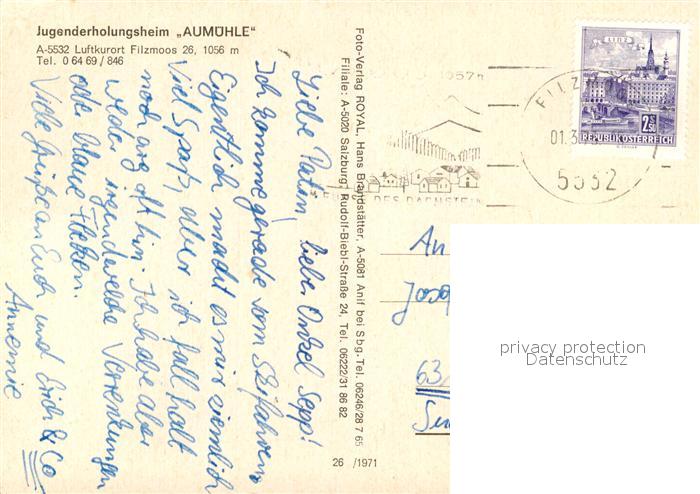 Jugenderholungsheim „AUMÜHLE"
A-5532 Luftkurort Filzmoos 26, 1056 m
Tel. 0 64 69 / 846
Liebe Patin, lieber Onkel Sepp!
Ich komme gerade vom Skifahren.
Eigentlich macht es mir ziemlich
viel Spaß, aber ich fall halt
noch arg oft hin. Ich habe aber
weder irgendwelche Verrenkungen
oder blaue Flecken.
Viele Grüße an Euch und Erich & Co
Annemie
Foto-Verlag ROYAL, Hans Brandstätter, A-5081 Anif bei Sbg.-Tel. 06246/28 7 65
Filiale: A-5020 Salzburg, Rudolf-Biebl-Straße 24, Tel. 06222/31 86 82
26 /1971
1057m
DES DACHSTEIN
FILZ
01.3
5532
LINZ
2.50
S
REPUBLIK ÖSTERREICH
An
Jose
63
privacy protection
Datenschutz